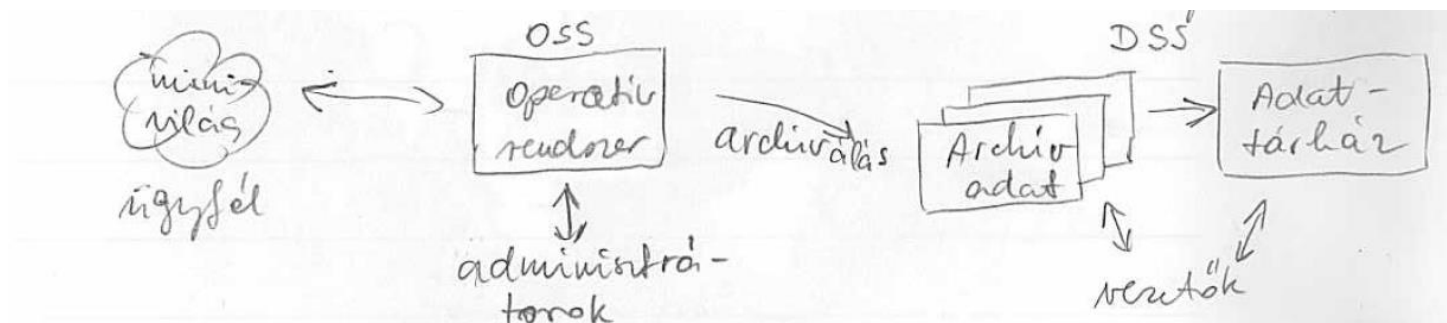 mini-
világ
ügyfél
OSS
operativ
rendszer
adminisztrá-
torok
archiválás
DSS
Archiv
adat
Adat-
tárház
vezetők